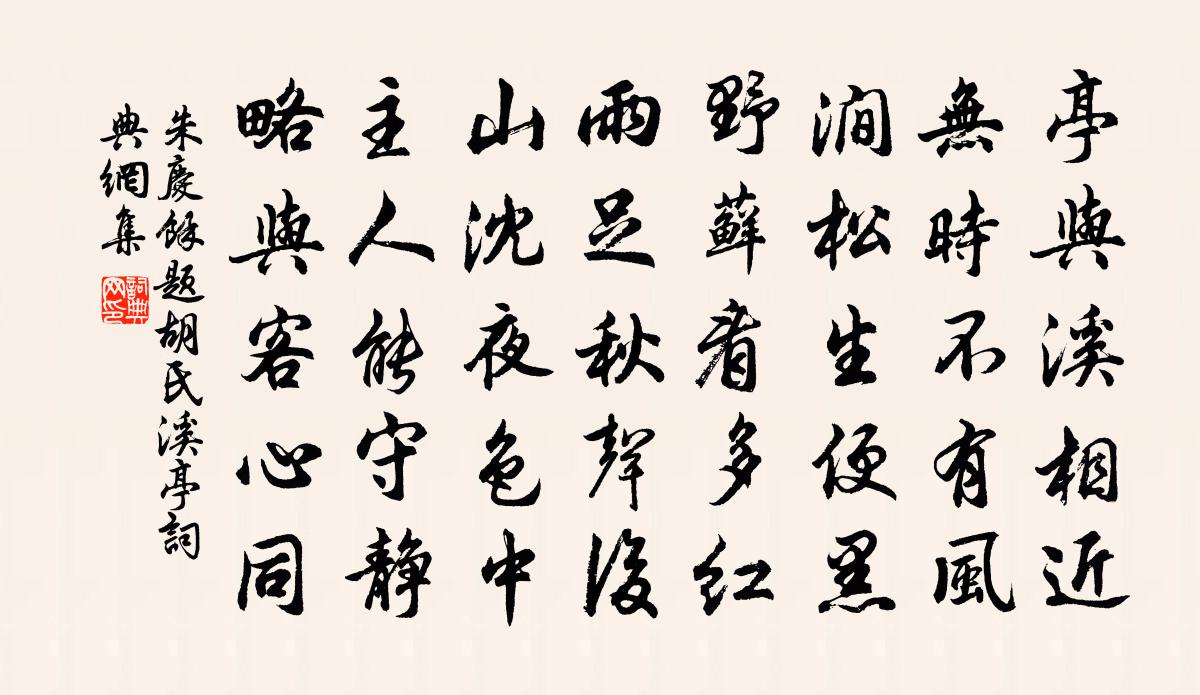 亭與溪相近
無時不有風
澗松生便黑
野蘚看多紅
雨足秋聲後
山沈夜色中
主人能守靜
略與客心同
朱慶餘題胡氏溪亭詞
典網集
詞典
网印